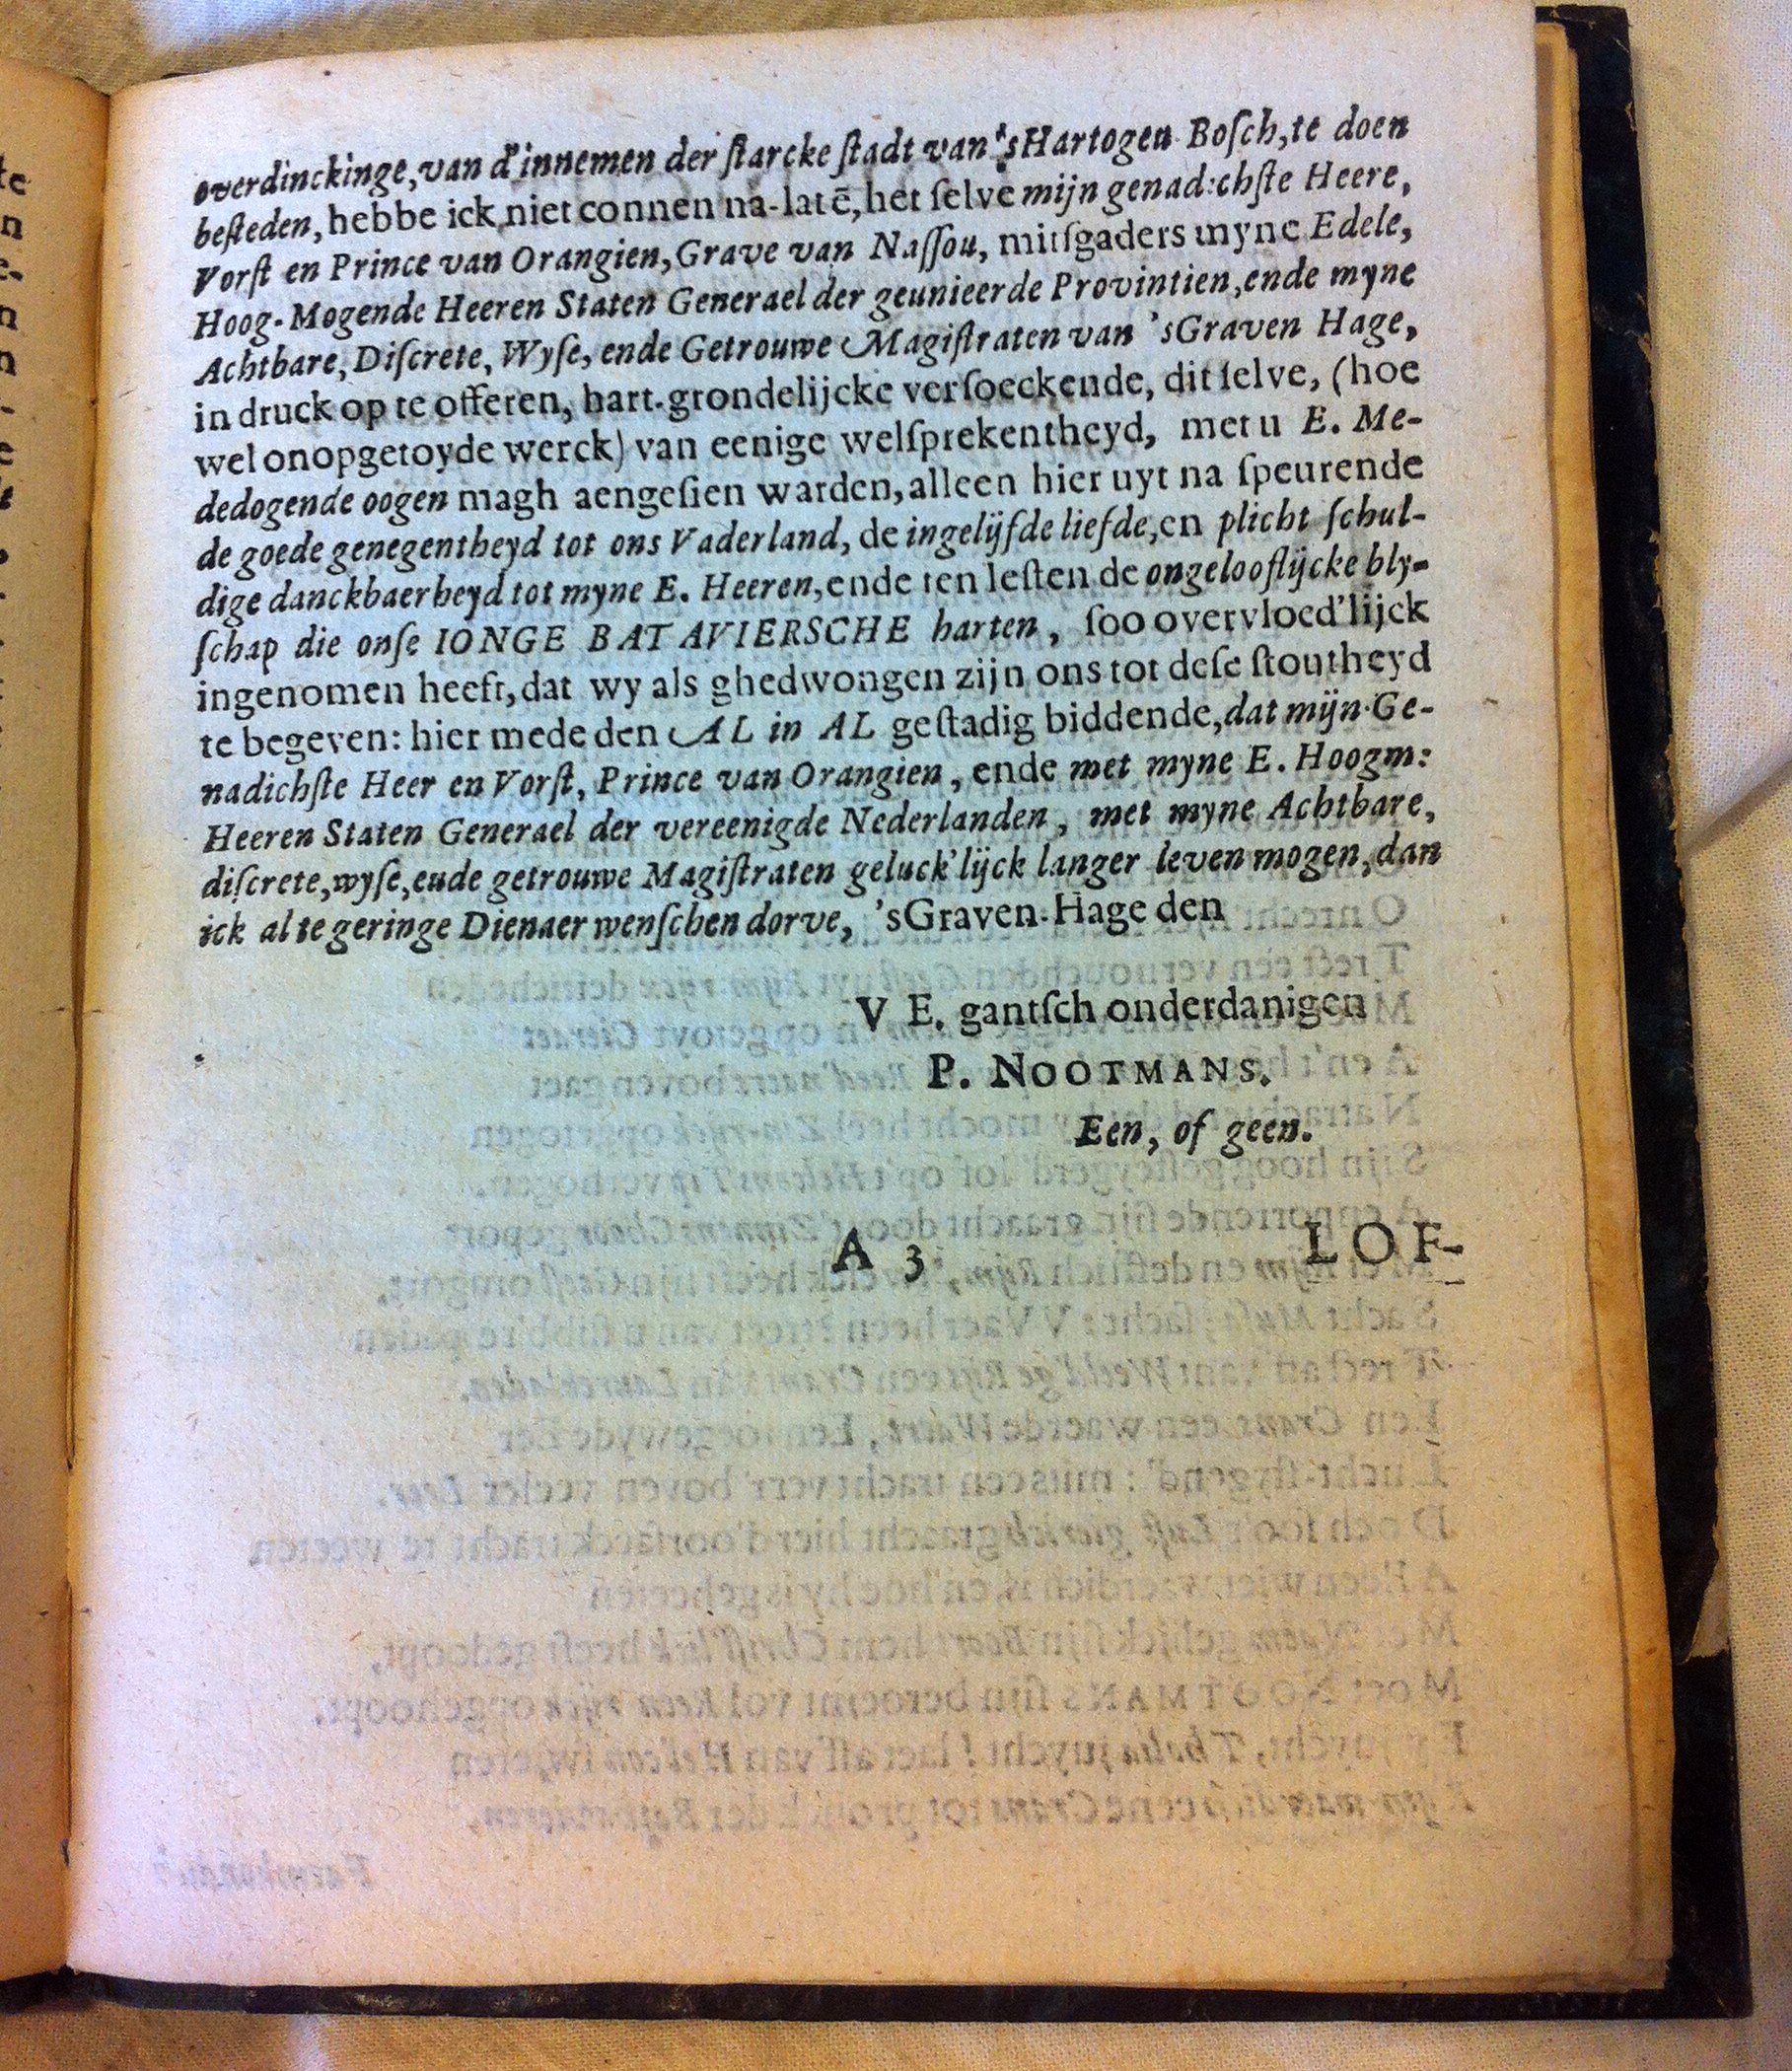 overdinckinge, van d'innemen der ſtarcke ſtadt van 'sHartogen Boſch, te doen
beſteden, hebbe ick niet connen na-latē, het ſelve mijn genad:chſte Heere,
Vorſt en Prince van Orangien, Grave van Naſſou, mitſgaders myne Edele,
Hoog-Mogende Heeren Staten Generael der geunieerde Provintien, ende myne
Achtbare, Diſcrete, Wyſe, ende Getrouwe Magiſtraten van 'sGraven Hage,
in druck op te offeren, hart-grondelijcke verſoeckende, dit ſelve, (hoe
wel onopgetoyde werck) van eenige welſprekentheyd, met u E. Me-
dedogende oogen magh aengeſien warden, alleen hier uyt na ſpeurende
de goede genegentheyd tot ons Vaderland, de ingelijfde liefde, en plicht ſchul-
dige danckbaerheyd tot myne E. Heeren, ende ten leſten de ongelooflijcke bly-
ſchap die onſe IONGE BATAVIERSCHE harten, ſoo overvloed'lijck
ingenomen heeft, dat wy als ghedwongen zijn ons tot deſe ſtoutheyd
te begeven: hier mede den AL in AL geſtadig biddende, dat mijn Ge-
nadichſte Heer en Vorſt, Prince van Orangien, ende met myne E. Hoogm:
Heeren Staten Generael der vereenigde Nederlanden, met myne Achtbare,
diſcrete, wyſe, ende getrouwe Magiſtraten geluck'lijck langer leven mogen, dan
ick al te geringe Dienaer wenſchen dorve, 'sGraven-Hage den
V E. gantſch onderdanigen
P. NOOTMANS.
Een, of geen.
A 3 LOF-